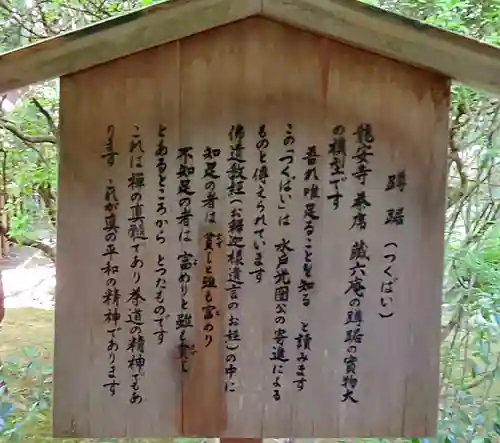 蹲踞（つくばい）
龍安寺茶席 蔵六庵の蹲踞の實物大
の模型です
吾れ唯足ることを知る と讀みます
この「つくばい」は 水戸光圀公の寄進による
ものと傳えられています
佛遺教経（お釋迦様遺言のお経）の中に
知足の者は 貧しと雖も富めり
不知足の者は 富めりと雖も貧し
とあるところから とつたものです
これは禅の真髄であり茶道の精神でもあ
ります これが真の平和の精神であります